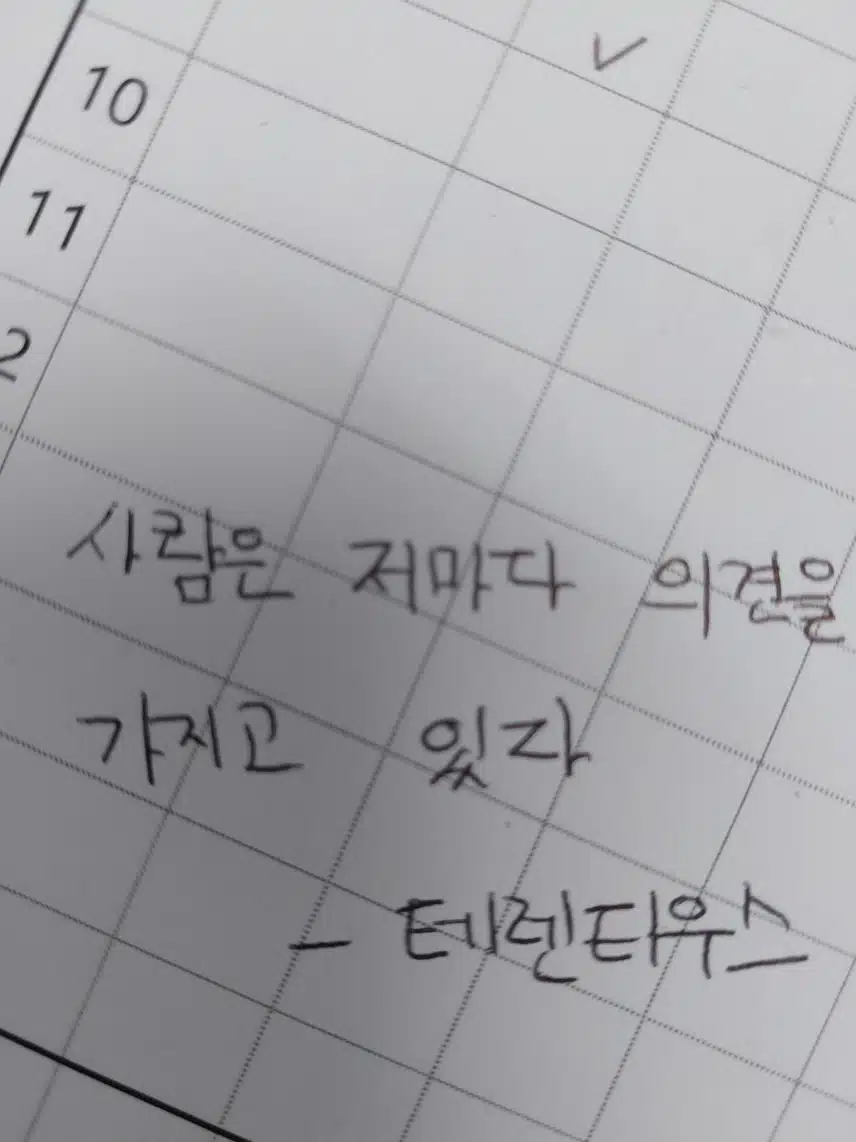 10
11
2
사람은 저마다 의견을
가지고 있다
- 테렌티우스